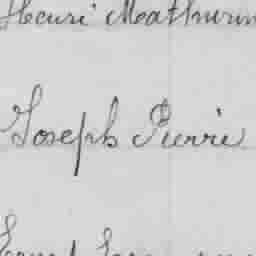 Henri Mathurin
Joseph Pierre